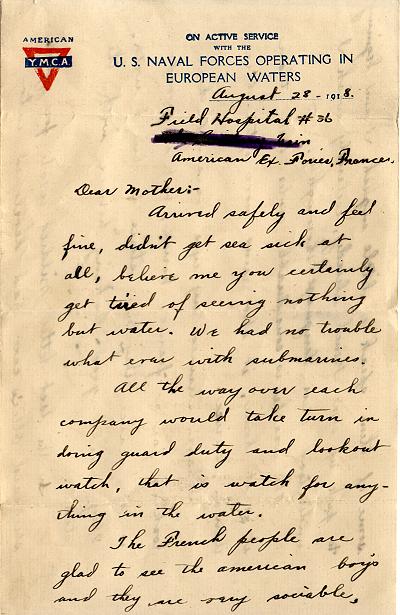 AMERICAN
Y.M.C.A
ON ACTIVE SERVICE
WITH THE
U. S. NAVAL FORCES OPERATING IN
EUROPEAN WATERS
August 28 - 1918.
Field Hospital #36
American Ex Forces, France.
Dear Mother:-
Arrived safely and feel
fine, didn't get sea sick at
all, believe me you certainly
get tired of seeing nothing
but water. We had no trouble
what ever with submarines.
All the way over each
company would take turn in
doing guard duty and lookout
watch, that is watch for any-
thing in the water.
The French people are
glad to see the american boys
and they are very sociable,